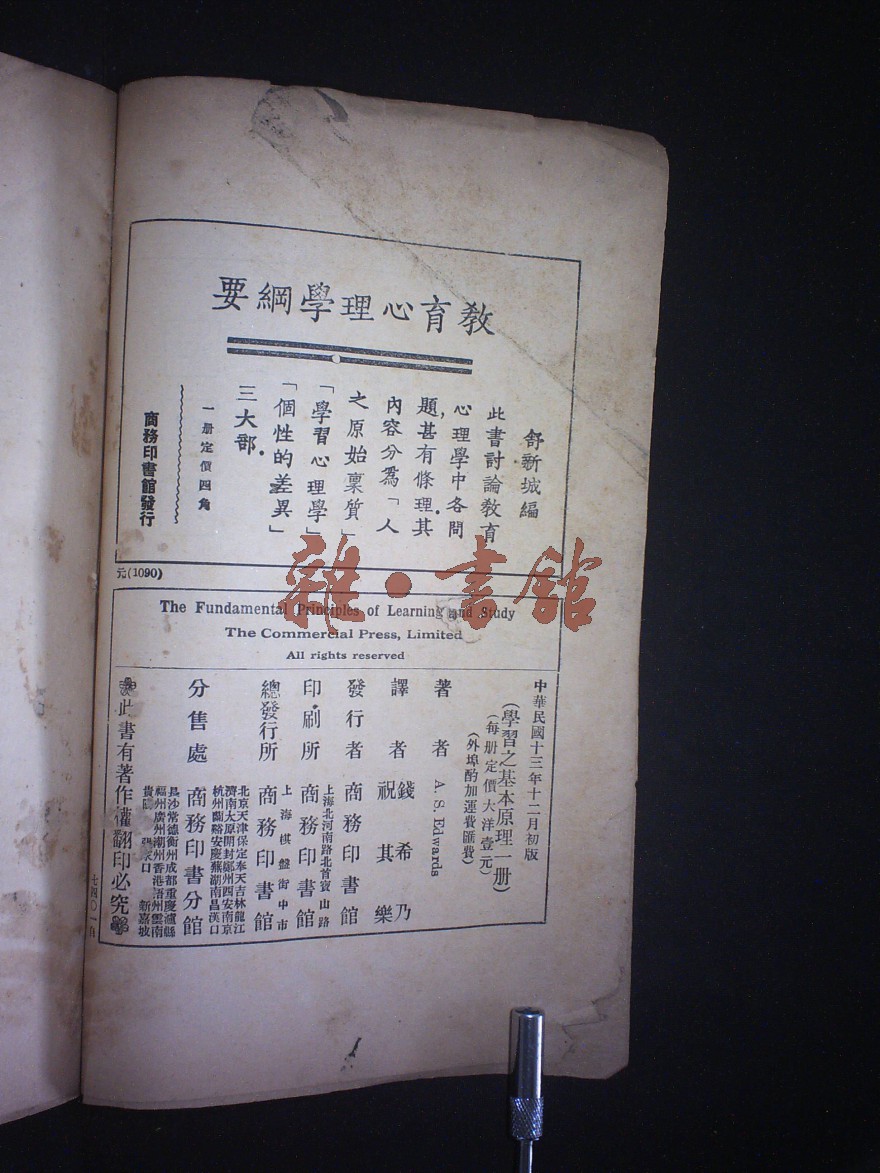 教育心理學綱要
舒新城編
此書討論教育
心理學中各問
題,甚有條理.其
內容分爲「人
之原始稟質」
「學習心理學」
「個性的差異」
三大部.
一册定價四角
商務印書館發行
元(1090)
雜·書館
The Fundamental Principles of Learning and Study
The Commercial Press, Limited
All rights reserved
中華民國十三年十二月初版
(學習之基本原理一册)
(每册定價大洋壹元)
(外埠酌加運費匯費)
著者 A. S. Edwards
譯者 錢希乃
祝其樂
發行者 商務印書館
印刷所 上海北河南路北首寶山路
商務印書館
總發行所 上海棋盤街中市
商務印書館
分售處 北京天津保定奉天吉林龍江
濟南太原開封鄭州西安南京
杭州蘭谿安慶蕪湖南昌漢口
商務印書分館
長沙常德衡州成都重慶瀘縣
福州廣州潮州香港梧州雲南
貴陽 張家口 新嘉坡
此書有著作權翻印必究
七四〇一自